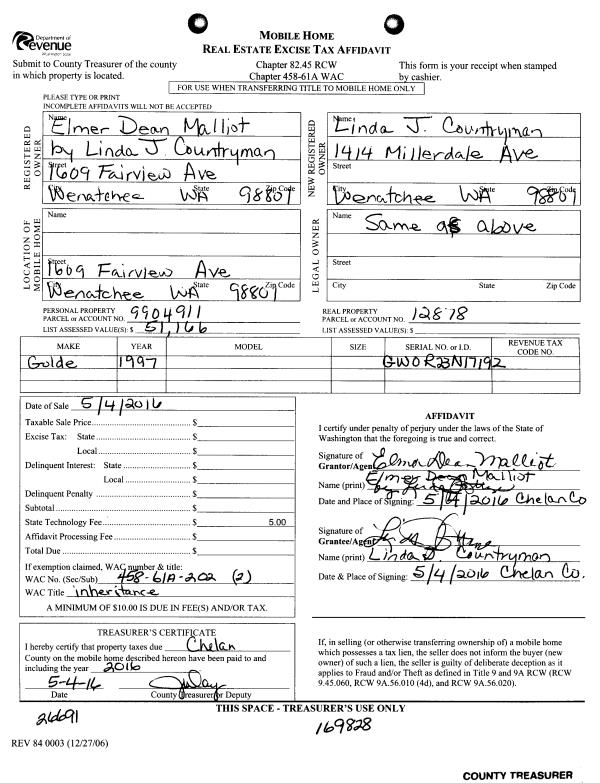 Department of
Revenue
Washington State
MOBILE HOME
REAL ESTATE EXCISE TAX AFFIDAVIT
Submit to County Treasurer of the county
in which property is located.
Chapter 82.45 RCW
Chapter 458-61A WAC
This form is your receipt when stamped
by cashier.
FOR USE WHEN TRANSFERRING TITLE TO MOBILE HOME ONLY
PLEASE TYPE OR PRINT
INCOMPLETE AFFIDAVITS WILL NOT BE ACCEPTED
REGISTERED OWNER
Name Elmer Dean Malliot
by Linda J. Countryman
Street 1609 Fairview Ave
City Wenatchee State WA Zip Code 98801
NEW REGISTERED OWNER
Name Linda J. Countryman
1414 Millerdale Ave
Street
City Wenatchee State WA Zip Code 98801
LOCATION OF MOBILE HOME
Name
Street 1609 Fairview Ave
City Wenatchee State WA Zip Code 98801
LEGAL OWNER
Name Same as above
Street
City State Zip Code
PERSONAL PROPERTY
PARCEL or ACCOUNT NO. 9904911
LIST ASSESSED VALUE(S): $ 51,166
REAL PROPERTY
PARCEL or ACCOUNT NO. 12878
LIST ASSESSED VALUE(S): $
MAKE YEAR MODEL SIZE SERIAL NO. or I.D. REVENUE TAX CODE NO.
Golde 1997 GWOR23N17192
Date of Sale 5/4/2016
Taxable Sale Price $
Excise Tax: State $
Local $
Delinquent Interest: State $
Local $
Delinquent Penalty $
Subtotal $
State Technology Fee $ 5.00
Affidavit Processing Fee $
Total Due $
If exemption claimed, WAC number & title:
WAC No. (Sec/Sub) 458-61A-202 (2)
WAC Title inheritance
A MINIMUM OF $10.00 IS DUE IN FEE(S) AND/OR TAX.
AFFIDAVIT
I certify under penalty of perjury under the laws of the State of
Washington that the foregoing is true and correct.
Signature of
Grantor/Agent Elmer Dean Malliot
Name (print) Elmer Dean Malliot
Date and Place of Signing: 5/4/2016 Chelan Co
Signature of
Grantee/Agent
Name (print) Linda J. Countryman
Date & Place of Signing: 5/4/2016 Chelan Co.
TREASURER'S CERTIFICATE
I hereby certify that property taxes due Chelan
County on the mobile home described hereon have been paid to and
including the year 2016
5-4-16
Date County Treasurer or Deputy
If, in selling (or otherwise transferring ownership of) a mobile home
which possesses a tax lien, the seller does not inform the buyer (new
owner) of such a lien, the seller is guilty of deliberate deception as it
applies to Fraud and/or Theft as defined in Title 9 and 9A RCW (RCW
9.45.060, RCW 9A.56.010 (4d), and RCW 9A.56.020).
THIS SPACE - TREASURER'S USE ONLY
26691
169828
REV 84 0003 (12/27/06)
COUNTY TREASURER